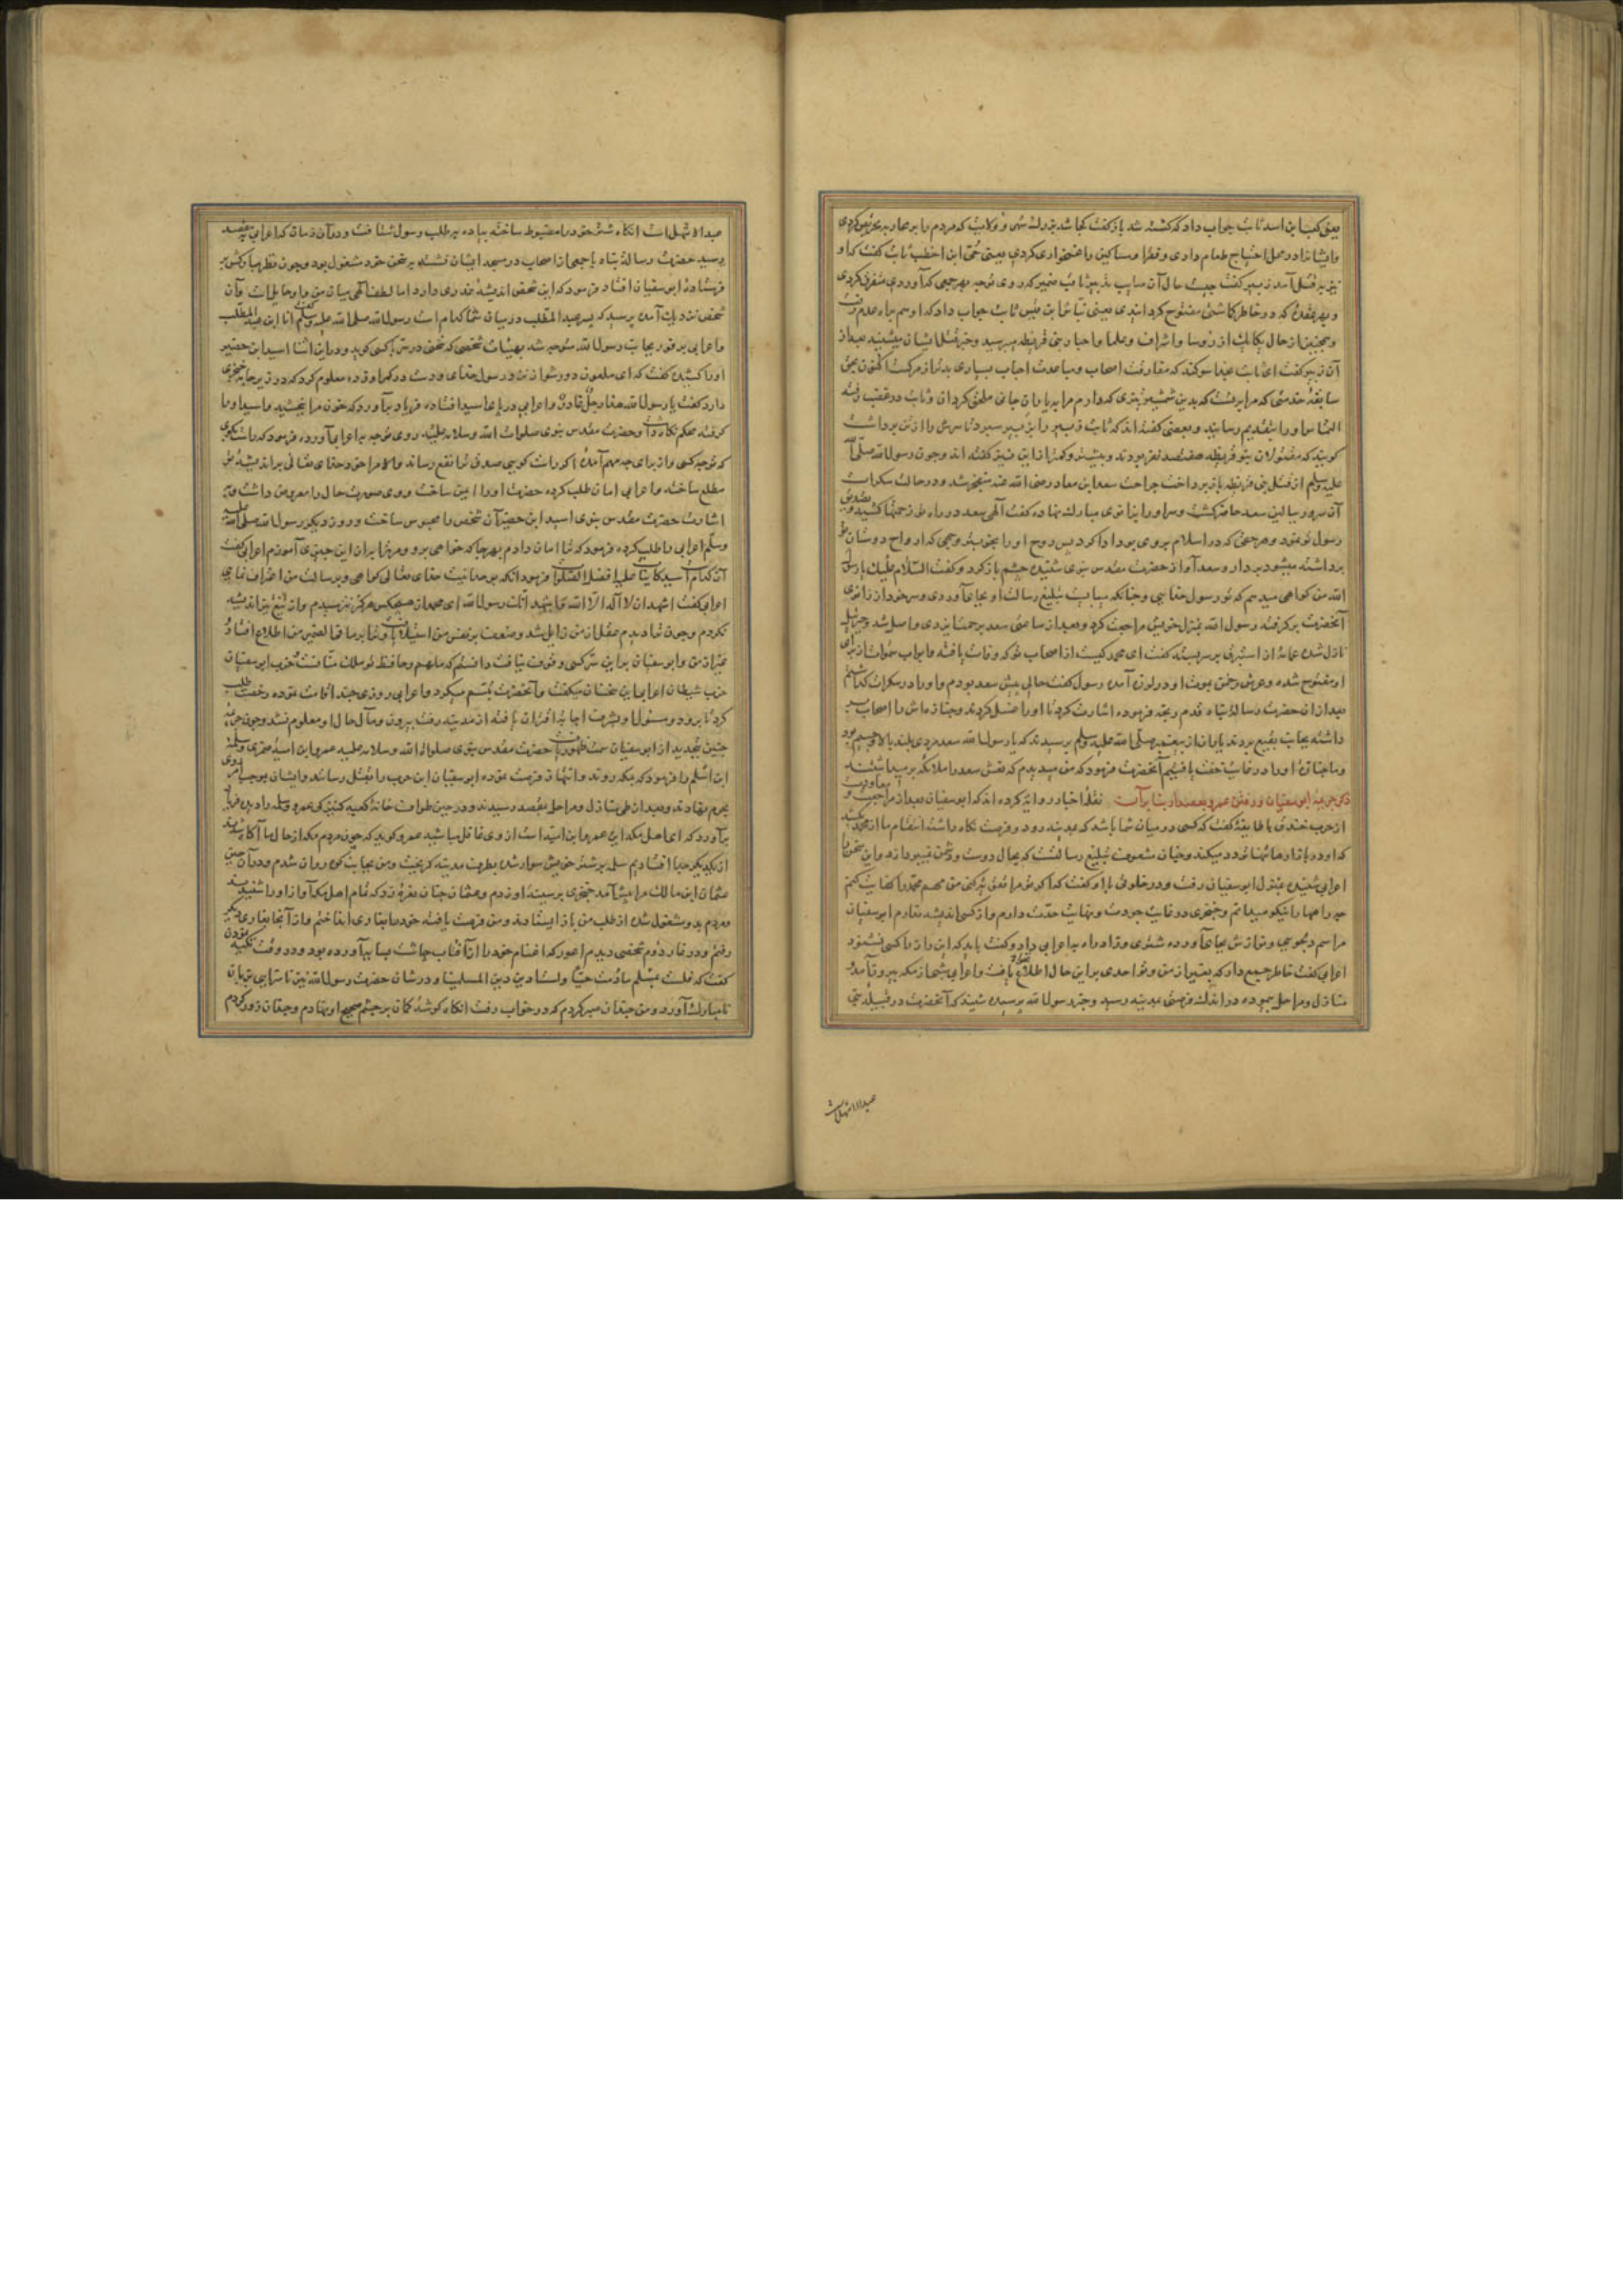 یعنی کعب ابن اسد ثابت جواب داد که کشته شد باز گفت کجا شد که مردم را بر محاربه تحریص کردی
و ایشانرا در محل احتیاج طعام دادی و فقرا و مساکین را غمخواری کردی یعنی حیی ابن اخطب ثابت گفت که او
نیز بقتل آمد زبیر گفت چیست حال آن
و بهر عقده که در خاطرها
و همچنین از حال یکایک از رؤسا و اشراف و علما و احبار بنی قریظه میپرسید و خبر قتل ایشان میشنید بعد از
آن زبیر گفت ای ثابت بخدا سوگند که مفارقت اصحاب و مباعدت احباب بسیاری بدتر از مرگ است اکنون بحق
سابقه خدمتی که مرا بر تست که بدین شمشیر تیزی که دارم مرا به یاران جانی ملحق گردان و ثابت
التماس او را بتقدیم رسانید و بعضی گفته اند که ثابت زبیر را به زبیر سپرد تا سرش را از تن برداشت
گویند که مقتولان بنو قریظه هفتصد نفر بودند و بیشتر و کمتر ازین نیز گفته اند و چون رسول الله صلی الله
علیه وسلم از قتل بنی قریظه باز پرداخت جراحت سعد ابن معاذ رضی الله عنه منفجر شد و در حالت سکرات
آن سرور ببالین سعد حاضر گشت و سر او را بزانوی مبارک نهاده گفت الهی سعد در راه تو زحمتها کشید و تصدیق
رسول تو نمود و هر حقی که در اسلام بر وی بود ادا کرد پس روح او را بخوبتر وجهی که ارواح دوستان تو
برداشته میشود بردار و سعد آواز حضرت مقدس نبوی شنیده چشم باز کرد و گفت السلام علیک یا رسول
الله من گواهی میدهم که تو رسول خدایی و چنانکه میبایست تبلیغ رسالت او بجای آوردی و سر خود از زانوی
آنحضرت برگرفته رسول الله بمنزل خویش مراجعت کرد و بعد از ساعتی سعد برحمت ایزدی واصل شد و جبرئیل
نازل شده عمامه از استبرق بر سر بسته گفت ای محمد کیست از اصحاب تو که وفات یافته و ابواب سموات از برای
او مفتوح شده و عرش رحمن بموت او در لرزه آمده رسول گفت حالی پیش سعد بودم و او را در سکرات گذاشتم
بعد از آن حضرت رسالت پناه قدم رنجه فرموده اشارت کرد تا او را غسل کردند و جنازه اش را اصحاب بر
داشته بجانب بقیع بردند یاران از پیغمبر صلی الله علیه وسلم پرسیدند که یا رسول الله سعد مردی بلند بالا و جسیم بود
و ما جنازه او را در غایت خفت یافتیم آنحضرت فرمود که من میدیدم که نعش سعد را ملائکه بر میداشتند
ذکر حیله ابو سفیان و رفتن عمرو بقصد او نقله اخبار روایت کرده اند که ابو سفیان بعد از مراجعت و معاودت
از حرب خندق با طایفه گفت که کسی در میان شما باشد که بمدینه رود و فرصت نگاه داشته انتقام ما از محمد بکشد
که او در بازارها تنها تردد میکند و چنان مشعوف تبلیغ رسالتست که بحال دوست و دشمن نمیپردازد و این سخن را
اعرابی شنیده بمنزل ابو سفیان رفت و در خلوتی با او گفت که اگر تو مرا تقویت کنی من مهم محمد را کفایت کنم
چه راهها را نیکو میدانم و خنجری در غایت جودت و نهایت حدت دارم و از کسی اندیشه ندارم ابو سفیان
مراسم دلجویی و نوازش بجای آورده شتری و زاد راه به اعرابی داد و گفت باید که این راز با کسی نگویی
اعرابی گفت خاطر جمیع دار که بغیر از من و تو احدی بر این حال اطلاع نیافت و اعرابی شبی از مکه بیرون آمده
منازل و مراحل پیموده در اندک فرصتی بمدینه رسید و خبر رسول الله پرسیده شنید که آنحضرت در قبیله بنی
عبد الاشهل است
عبد الاشهل است انگاه شتر خود را مضبوط ساخته پیاده بر طلب رسول شتافت و در آن زمان که اعرابی بمقصد
رسید حضرت رسالت پناه با جمعی از اصحاب در مسجد ایشان نشسته بر سخن خود مشغول بود و چون نظر مبارکش بر
فرستاده ابو سفیان افتاد فرمود که این شخص اندیشه غدری دارد اما لطف الهی میان من و او حایل است و آن
شخص نزدیک آمده پرسید که پسر عبد المطلب در میان شما کدام است رسول الله صلی الله علیه وسلم گفت انا ابن عبد المطلب
و اعرابی بر فور بجانب رسول الله متوجه شد بهیئات شخصی که سخنی در سر با کسی گوید و در این اثنا اسید ابن حضیر
او را کشیده گفت که ای ملعون دور شو از نزد رسول خدای و دست در کمر او زده معلوم کرد که در زیر جامه خنجری
دارد گفت یا رسول الله هذا رجل غادر و اعرابی در پای اسید افتاده فریاد برآورد که خون مرا ببخشید و اسید او را
گرفته محکم نگاه داشت و حضرت مقدس نبوی صلوات الله وسلامه علیه روی توجه به اعرابی آورده فرمود که راست بگوی
که تو چه کسی و از برای چه مهم آمده اگر راست گویی صدق ترا نفع رساند و الا مرا حق تعالی بر اندیشه تو
مطلع ساخته و اعرابی امان طلب کرده حضرت او را ایمن ساخت و وی صورت حال را معروض داشت و به
اشارت حضرت مقدس نبوی اسید ابن حضیر آن شخص را محبوس ساخت و روز دیگر رسول الله صلی الله علیه
وسلم اعرابی را طلب کرده فرمود که ترا امان دادم بهر جا که خواهی برو و بهتر ازین چیزی آموزم اعرابی گفت
آن کدام است سید کاینات علیه افضل الصلوات فرمود انکه بوحدانیت خدای تعالی گواهی و برسالت من اعتراف نمایی
اعرابی گفت اشهد ان لا اله الا الله و اشهد انک رسول الله ای محمد از هیچکس هرگز نترسیدم و از تیغ تیز اندیشه
نکردم و چون ترا دیدم عقل از من زایل شد و ضعف بر نفس من استیلا یافت و ترا بر ما فی الضمیر من اطلاع افتاد
بغیر از من و ابو سفیان بر این سر کسی وقوف نیافت دانستم که ملهم و حافظ تو ملک منانست و حزب ابو سفیان
حزب شیطان اعرابی این سخنان میگفت و آنحضرت تبسم میکرد و اعرابی روزی چند اقامت نموده رخصت طلب
کرد تا برود و مسئول او بشرف اجابت اقتران یافته از مدینه رفت بیرون و مآل حال او معلوم نشد و چون
چنین تجدید از ابو سفیان سمت ظهور یافت حضرت مقدس نبوی صلوات الله وسلامه علیه عمرو ابن امیه ضمری و سلمه
ابن اسلم را فرمود که بمکه روند و انتهاز فرصت نموده ابو سفیان ابن حرب را بقتل رسانند و ایشان بموجب
بعد از طی منازل و مراحل بمقصد رسیدند و در حین طواف خانه کعبه
برآورد که ای اهل مکه این عمرو ابن امیه است از وی غافل مباشید عمرو گوید که چون مردم مکه از حال ما آگاه شدند
از یکدیگر جدا افتادیم سلمه بر شتر خویش سوار شده بطرف مدینه گریخت و من بجانب کوه روان شدم و در آن حین
عثمان ابن مالک مرا پیش آمد خنجری بر سینه او زدم و عثمان چنان نعره زد که تمام اهل مکه آواز او را شنیدند
و مردم بدو مشغول شده از طلب من باز ایستادند و من فرصت یافته خود را بغاری انداختم و از آنجا بغاری دیگر
رفتم و در غار دوم شخصی دیدم اعور که اغنام خود را از آفتاب چاشت بسایه آورده بود و در وقت تکیه نمودن
گفت که فلست بمسلم مادمت حیا ولست ادین دین المسلمینا و در شان حضرت رسول الله نیز ناسزایی بر زبان
نامبارک آورد و من چندان صبر کردم که در خواب رفت انگاه گوشه کمان بر چشم صحیح او نهادم و چندان زور کردم